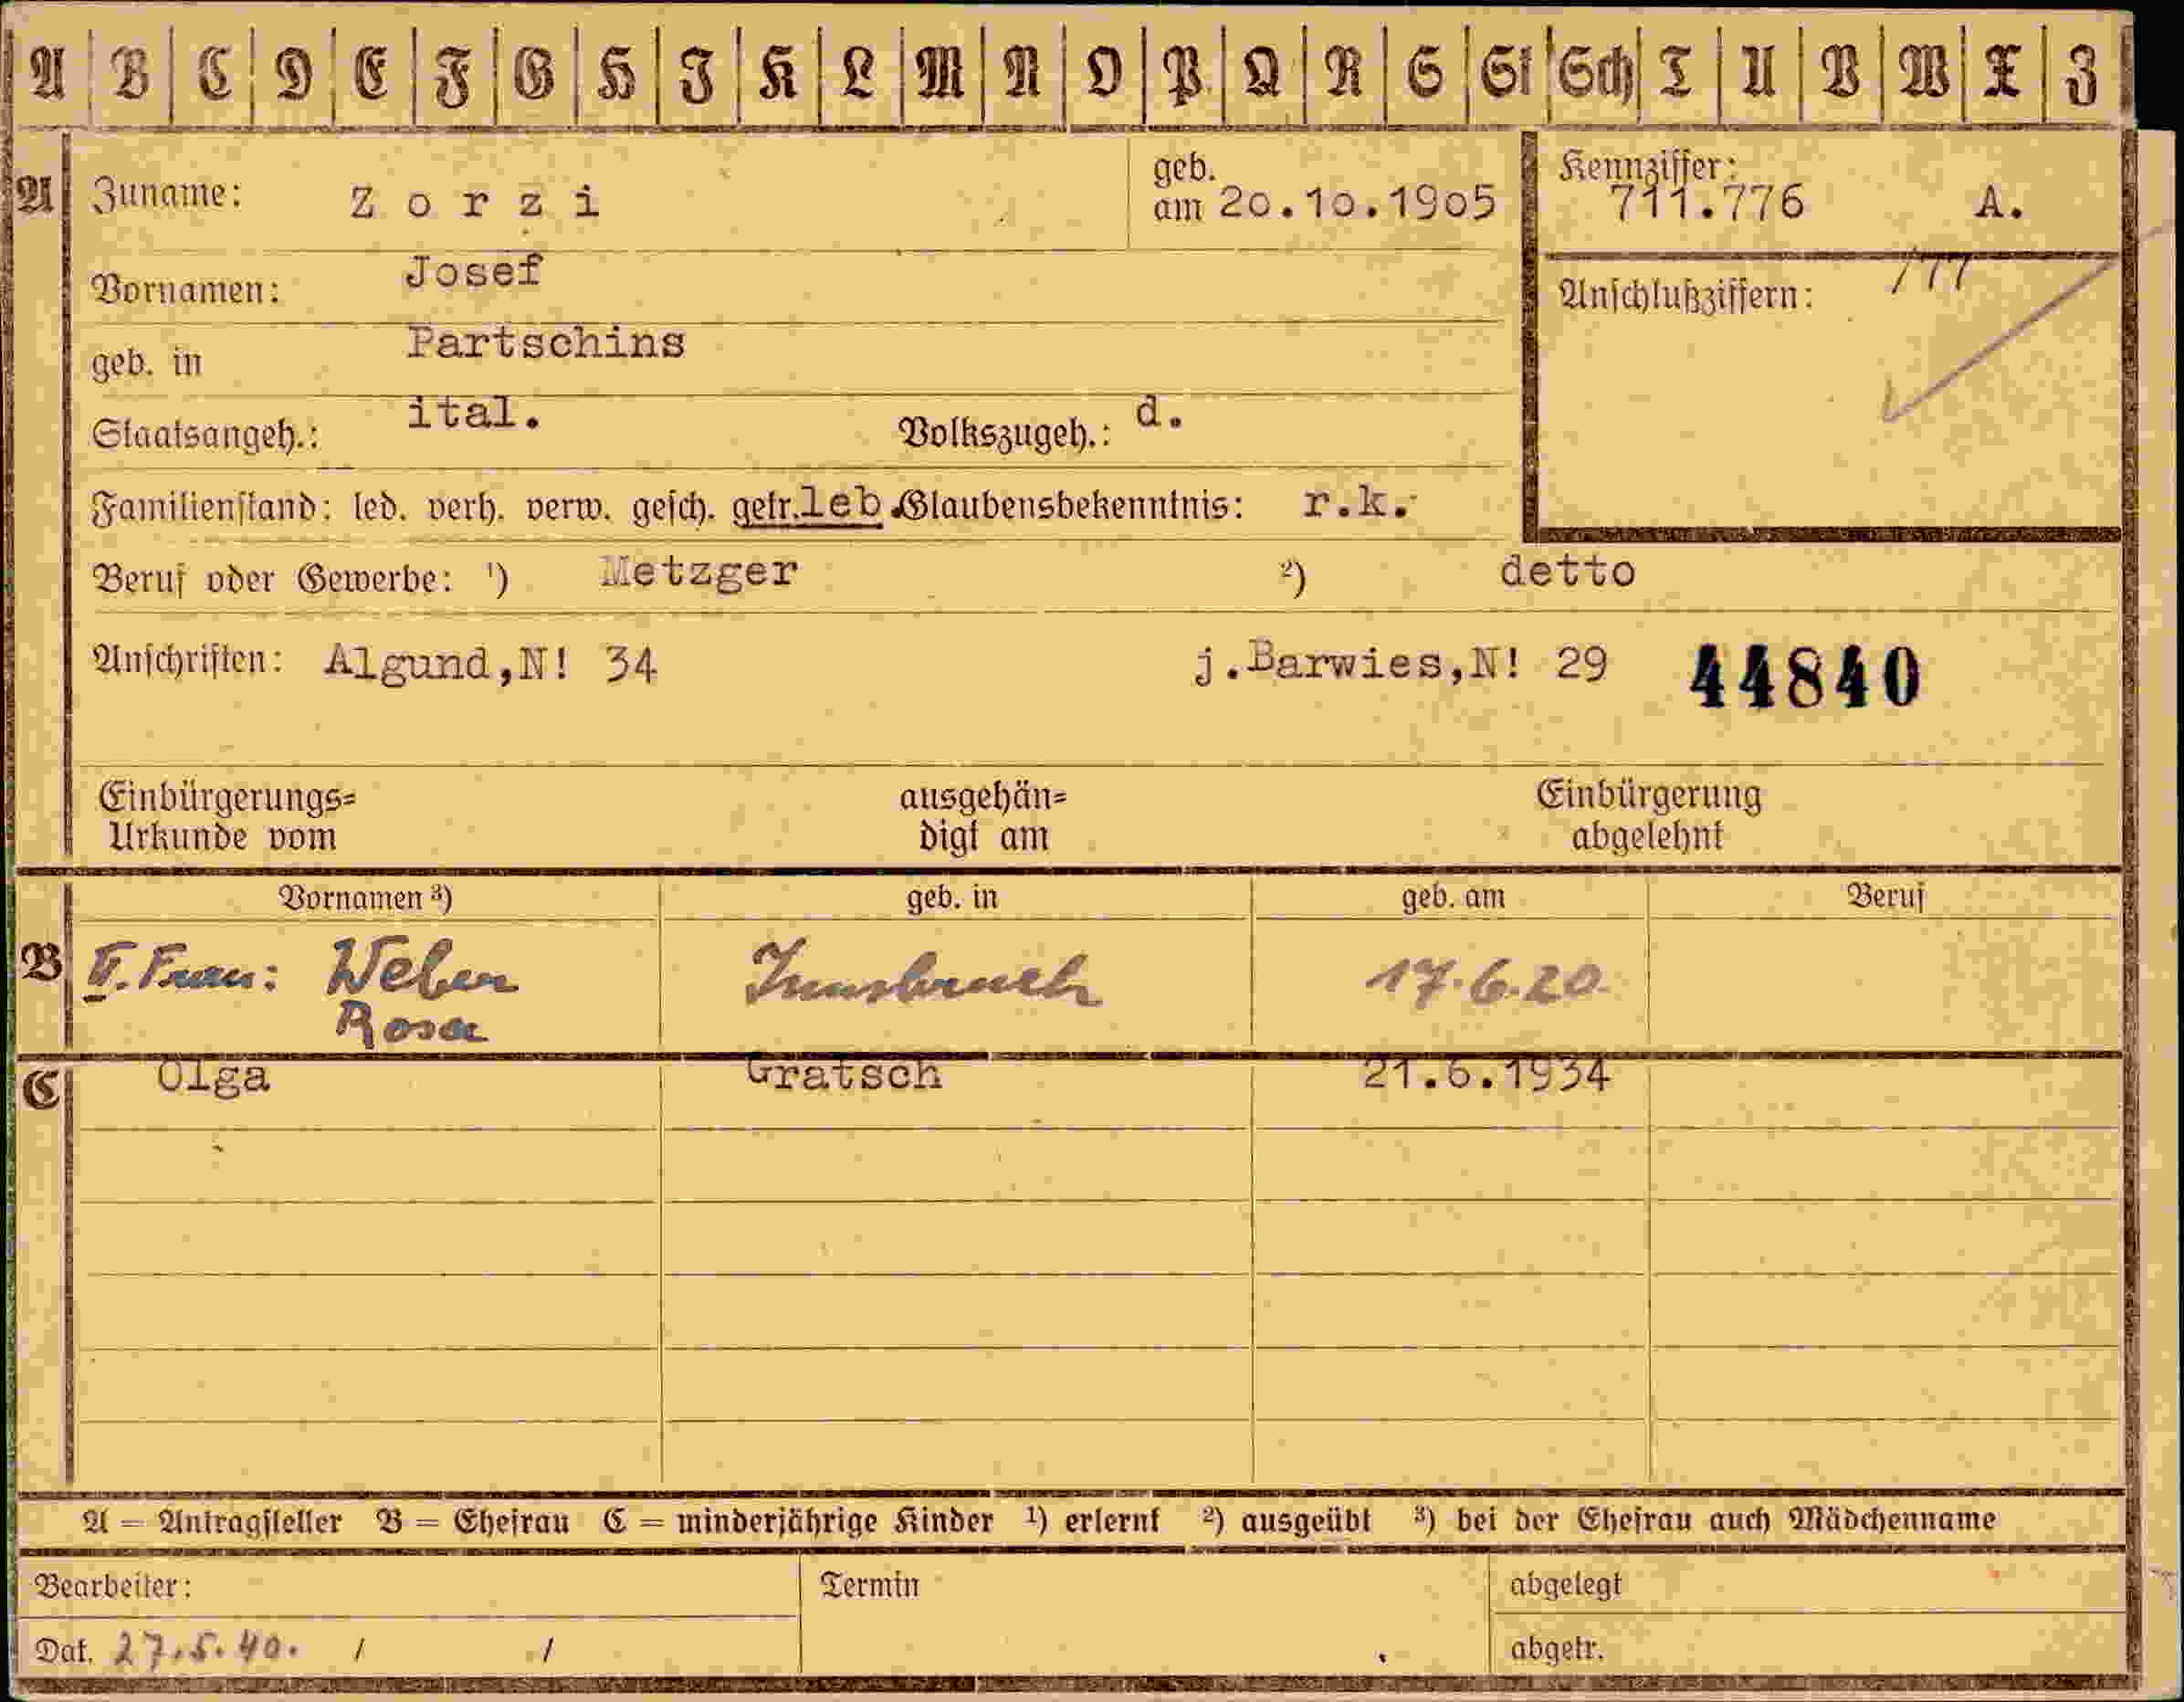 A B C D E F G H J K L M N O P Q R S St Sch T U V W X Z
A Zuname: Zorzi geb. am 20.10.1905 Kennziffer: 711.776 A.
Vornamen: Josef Anschlußziffern: /77
geb. in Partschins
Staatsangeh.: ital. Volkszugeh.: d.
Familienstand: led. verh. verw. gesch. getr.leb. Glaubensbekenntnis: r.k.
Beruf oder Gewerbe: ¹) Metzger ²) detto
Anschriften: Algund,N! 34 j.Barwies,N! 29 44840
Einbürgerungs= ausgehän= Einbürgerung
Urkunde vom digt am abgelehnt
Vornamen ³) geb. in geb. am Beruf
B II. Frau: Weber Innsbruck 17.6.20.
Rosa
C Olga Gratsch 21.6.1934
A = Antragsteller B = Ehefrau C = minderjährige Kinder ¹) erlernt ²) ausgeübt ³) bei der Ehefrau auch Mädchenname
Bearbeiter: Termin abgelegt
Dat. 27.5.40. / / abgetr.